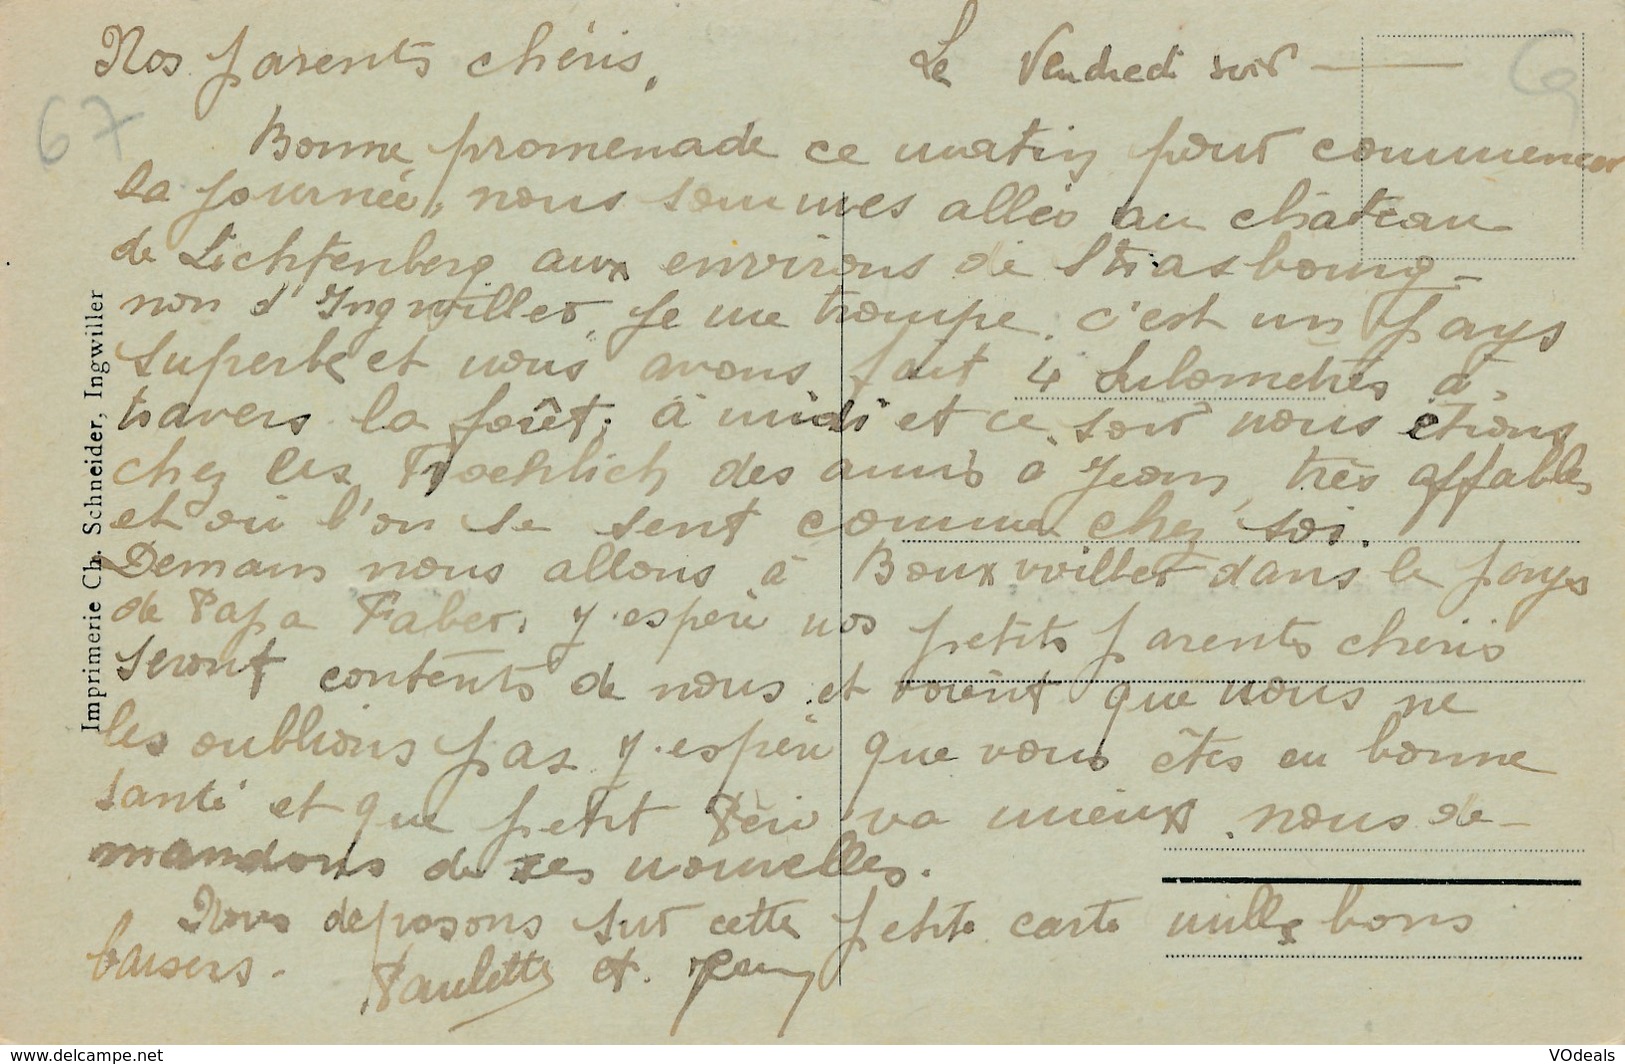 Nos parents chéris,
Le Vendredi soir
67
Bonne promenade ce matin pour commencer
la journée, nous sommes allés au château
de Lichtenberg aux environs de Strasbourg -
non d'Ingwiller, je me trompe. c'est un pays
superbe et nous avons fait 4 kilomètres à
travers la forêt; à midi et ce soir nous étions
chez les Froehlich des amis à Jean, très affables
et où l'on se sent comme chez soi.
Demain nous allons à Bouxwiller dans le pays
de Papa Faber. J'espère nos petits parents chéris
seront contents de nous et voient que nous ne
les oublions pas J'espère que vous êtes en bonne
santé et que petit va mieux. nous de-
mandons de ses nouvelles.
Nous deposons sur cette petite carte mille bons
baisers. Paulette et Jean
Imprimerie Ch. Schneider, Ingwiller
www.delcampe.net
VOdeals